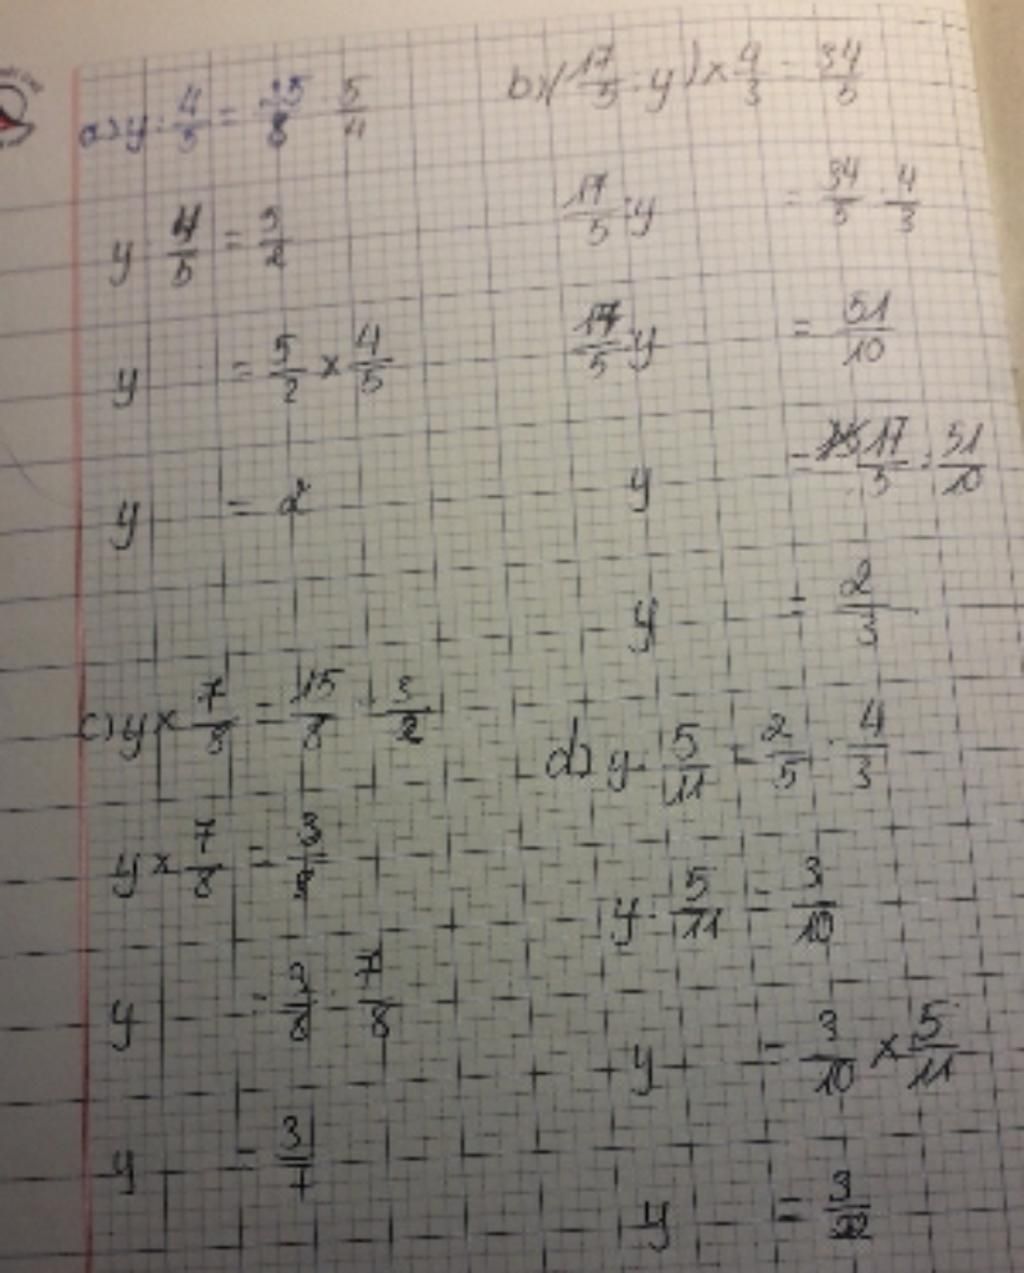 a) y : 4/5 = 25/8 : 5/4
y : 4/5 = 5/2
y = 5/2 × 4/5
y = 2
b) (17/5 : y) × 4/3 = 34/5
17/5 : y = 34/5 : 4/3
17/5 : y = 51/10
y = 17/5 : 51/10
y = 2/3
c) y × 7/8 = 15/8 - 3/2
y × 7/8 = 3/8
y = 3/8 : 7/8
y = 3/7
d) y : 5/11 = 2/5 : 4/3
y : 5/11 = 3/10
y = 3/10 × 5/11
y = 3/22